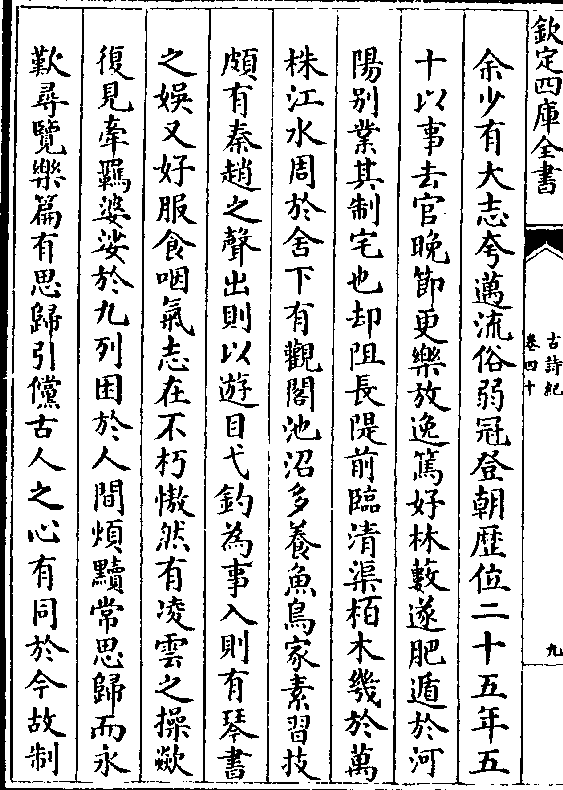 欽定四庫全書
古詩紀
卷四十
九
余少有大志夸邁流俗弱冠登朝歴位二十五年五
十以事去官晚節更樂放逸篤好林藪遂肥遁於河
陽别業其制宅也却阻長隄前臨清渠栢木幾於萬
株江水周於舍下有觀閣池沼多養魚鳥家素習技
頗有秦趙之聲出則以遊目弋釣為事入則有琴書
之娛又好服食咽氣志在不朽慠然有凌雲之操歘
復見牽羈婆娑於九列困於人間煩黷常思歸而永
歎尋覽樂篇有思歸引儻古人之心有同於今故制